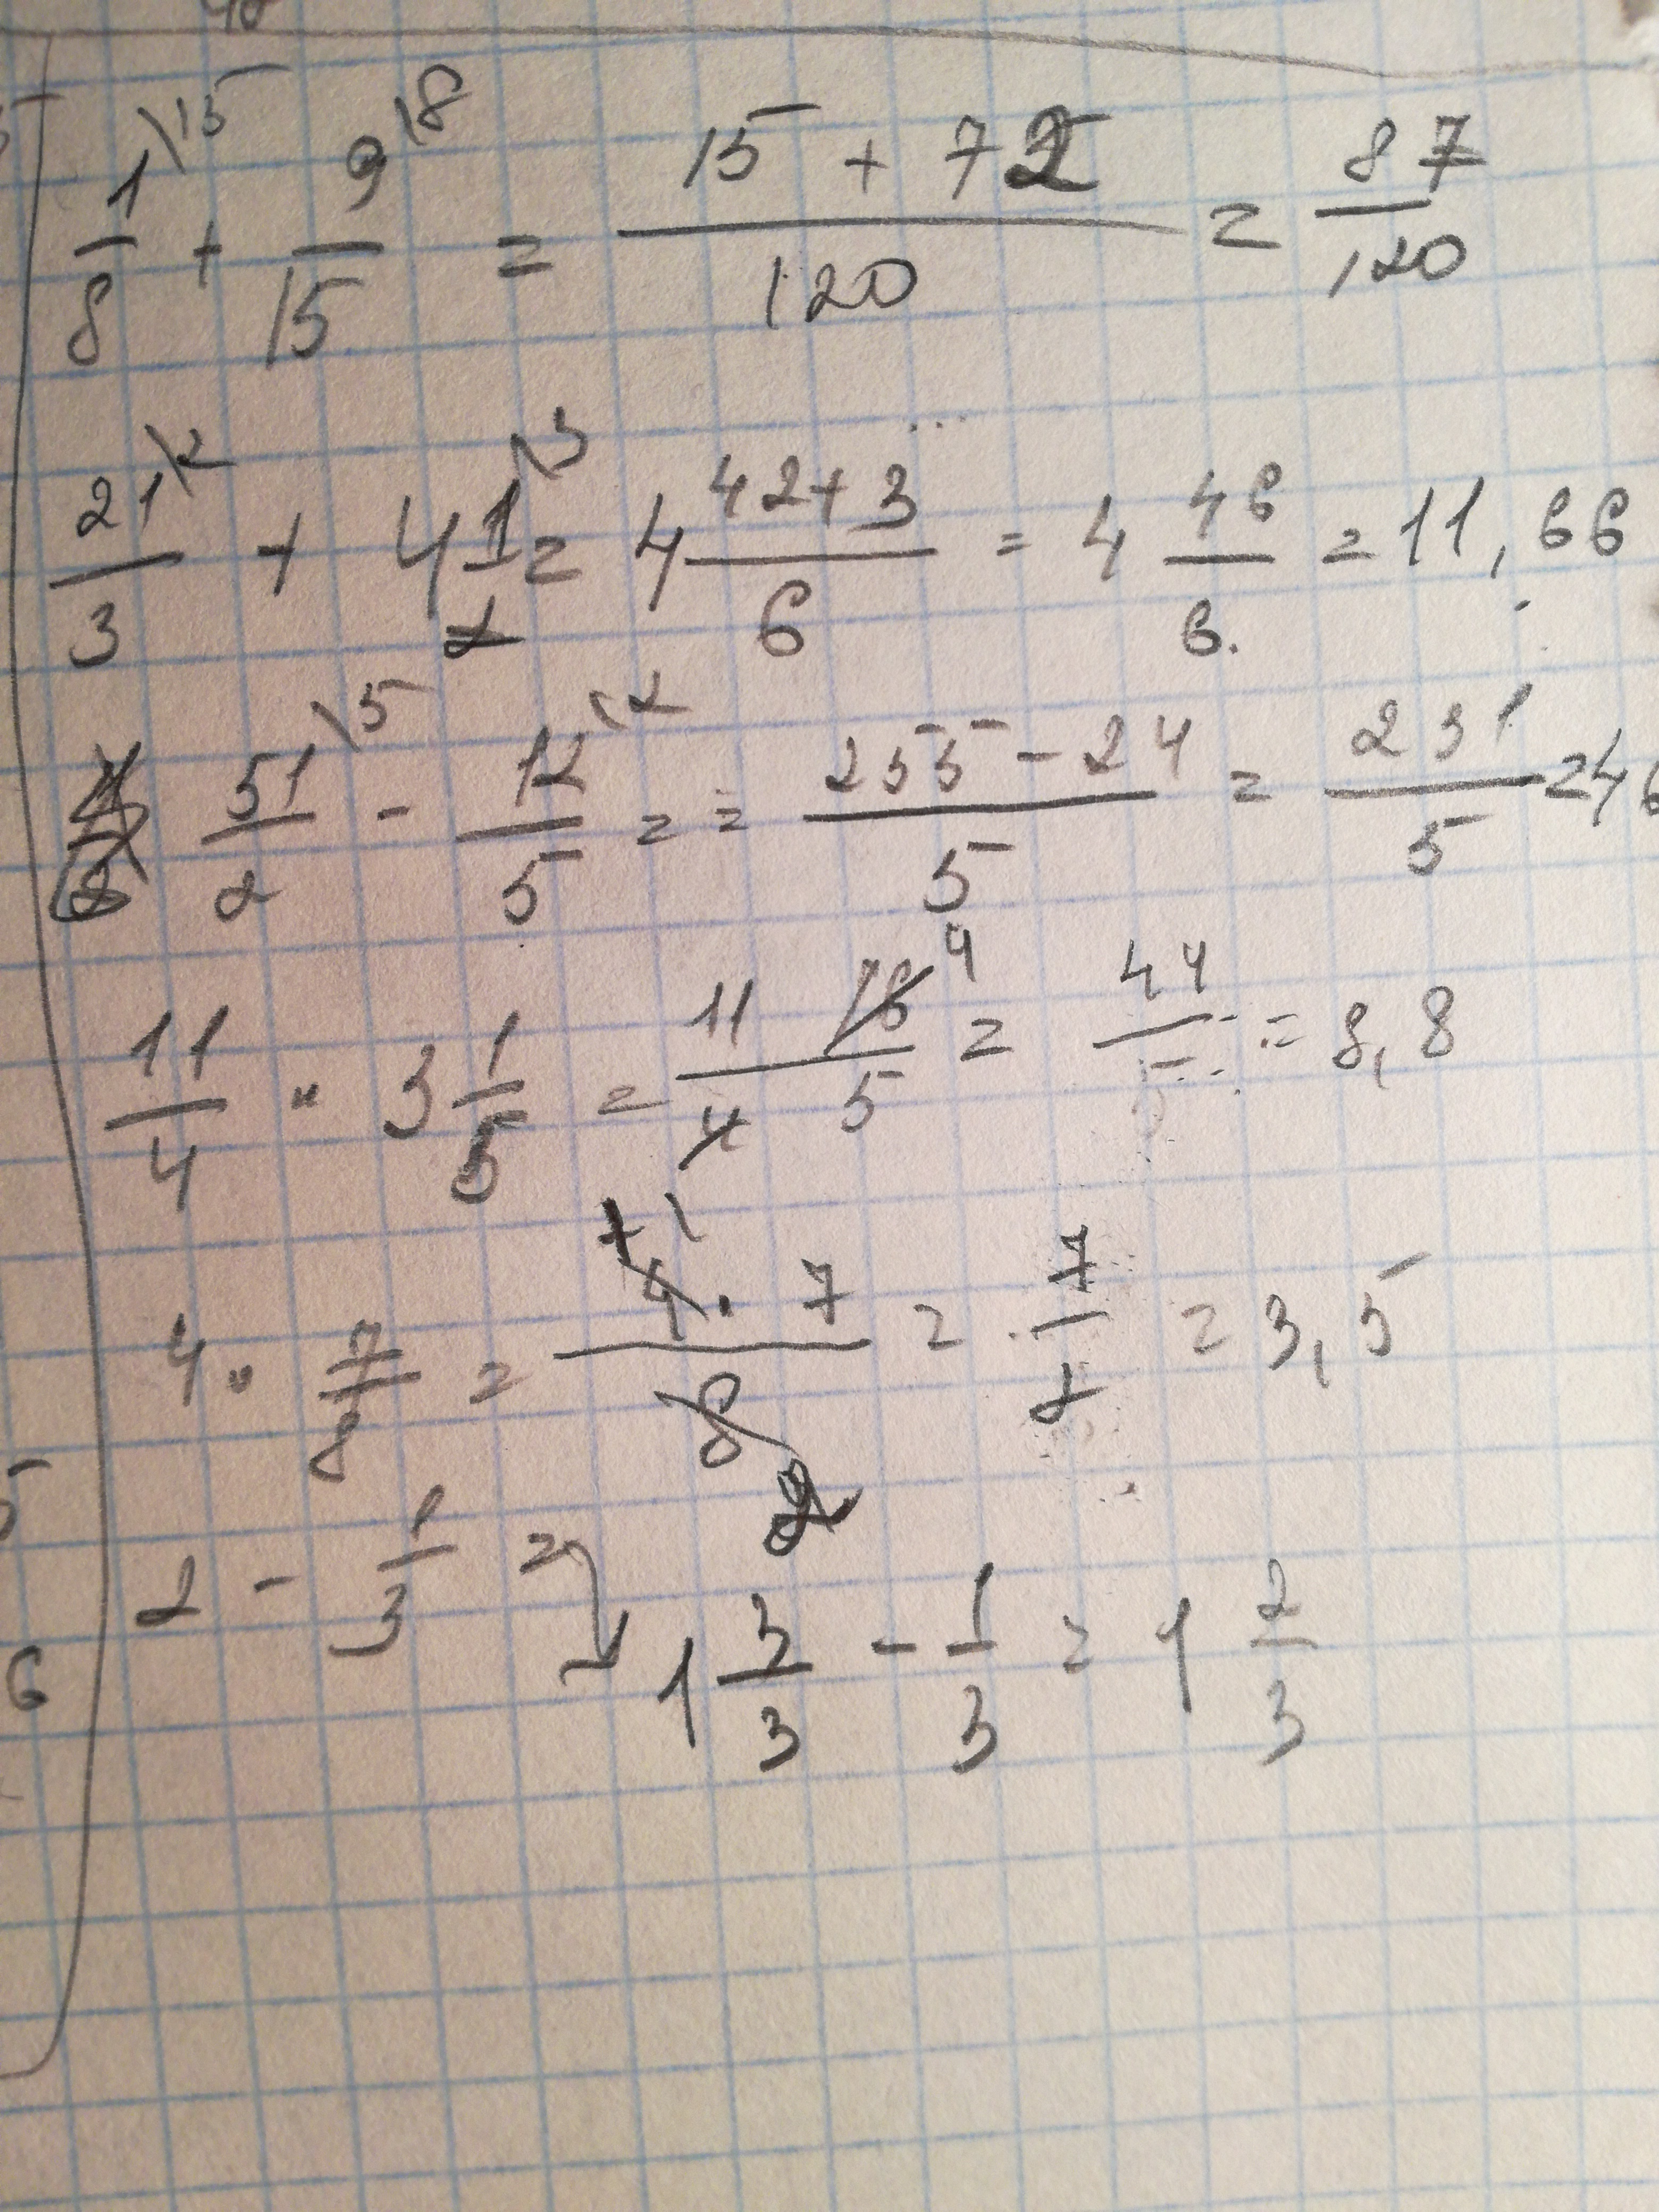 1\15/8 + 9\8/15 = (15 + 72)/120 = 87/120
21\2/3 + 4 1\3/2 = 4 (42+3)/6 = 4 46/6 = 11,66
51\5/2 - 12\2/5 = = (255 - 24)/5 = 231/5 = 46
11/4 · 3 1/5 = 11/4 16/5 4 = 44/5 = 8,8
4 · 7/8 = 1 4 · 7/8 2 = 7/2 = 3,5
2 - 1/3 =
1 3/3 - 1/3 = 1 2/3
6